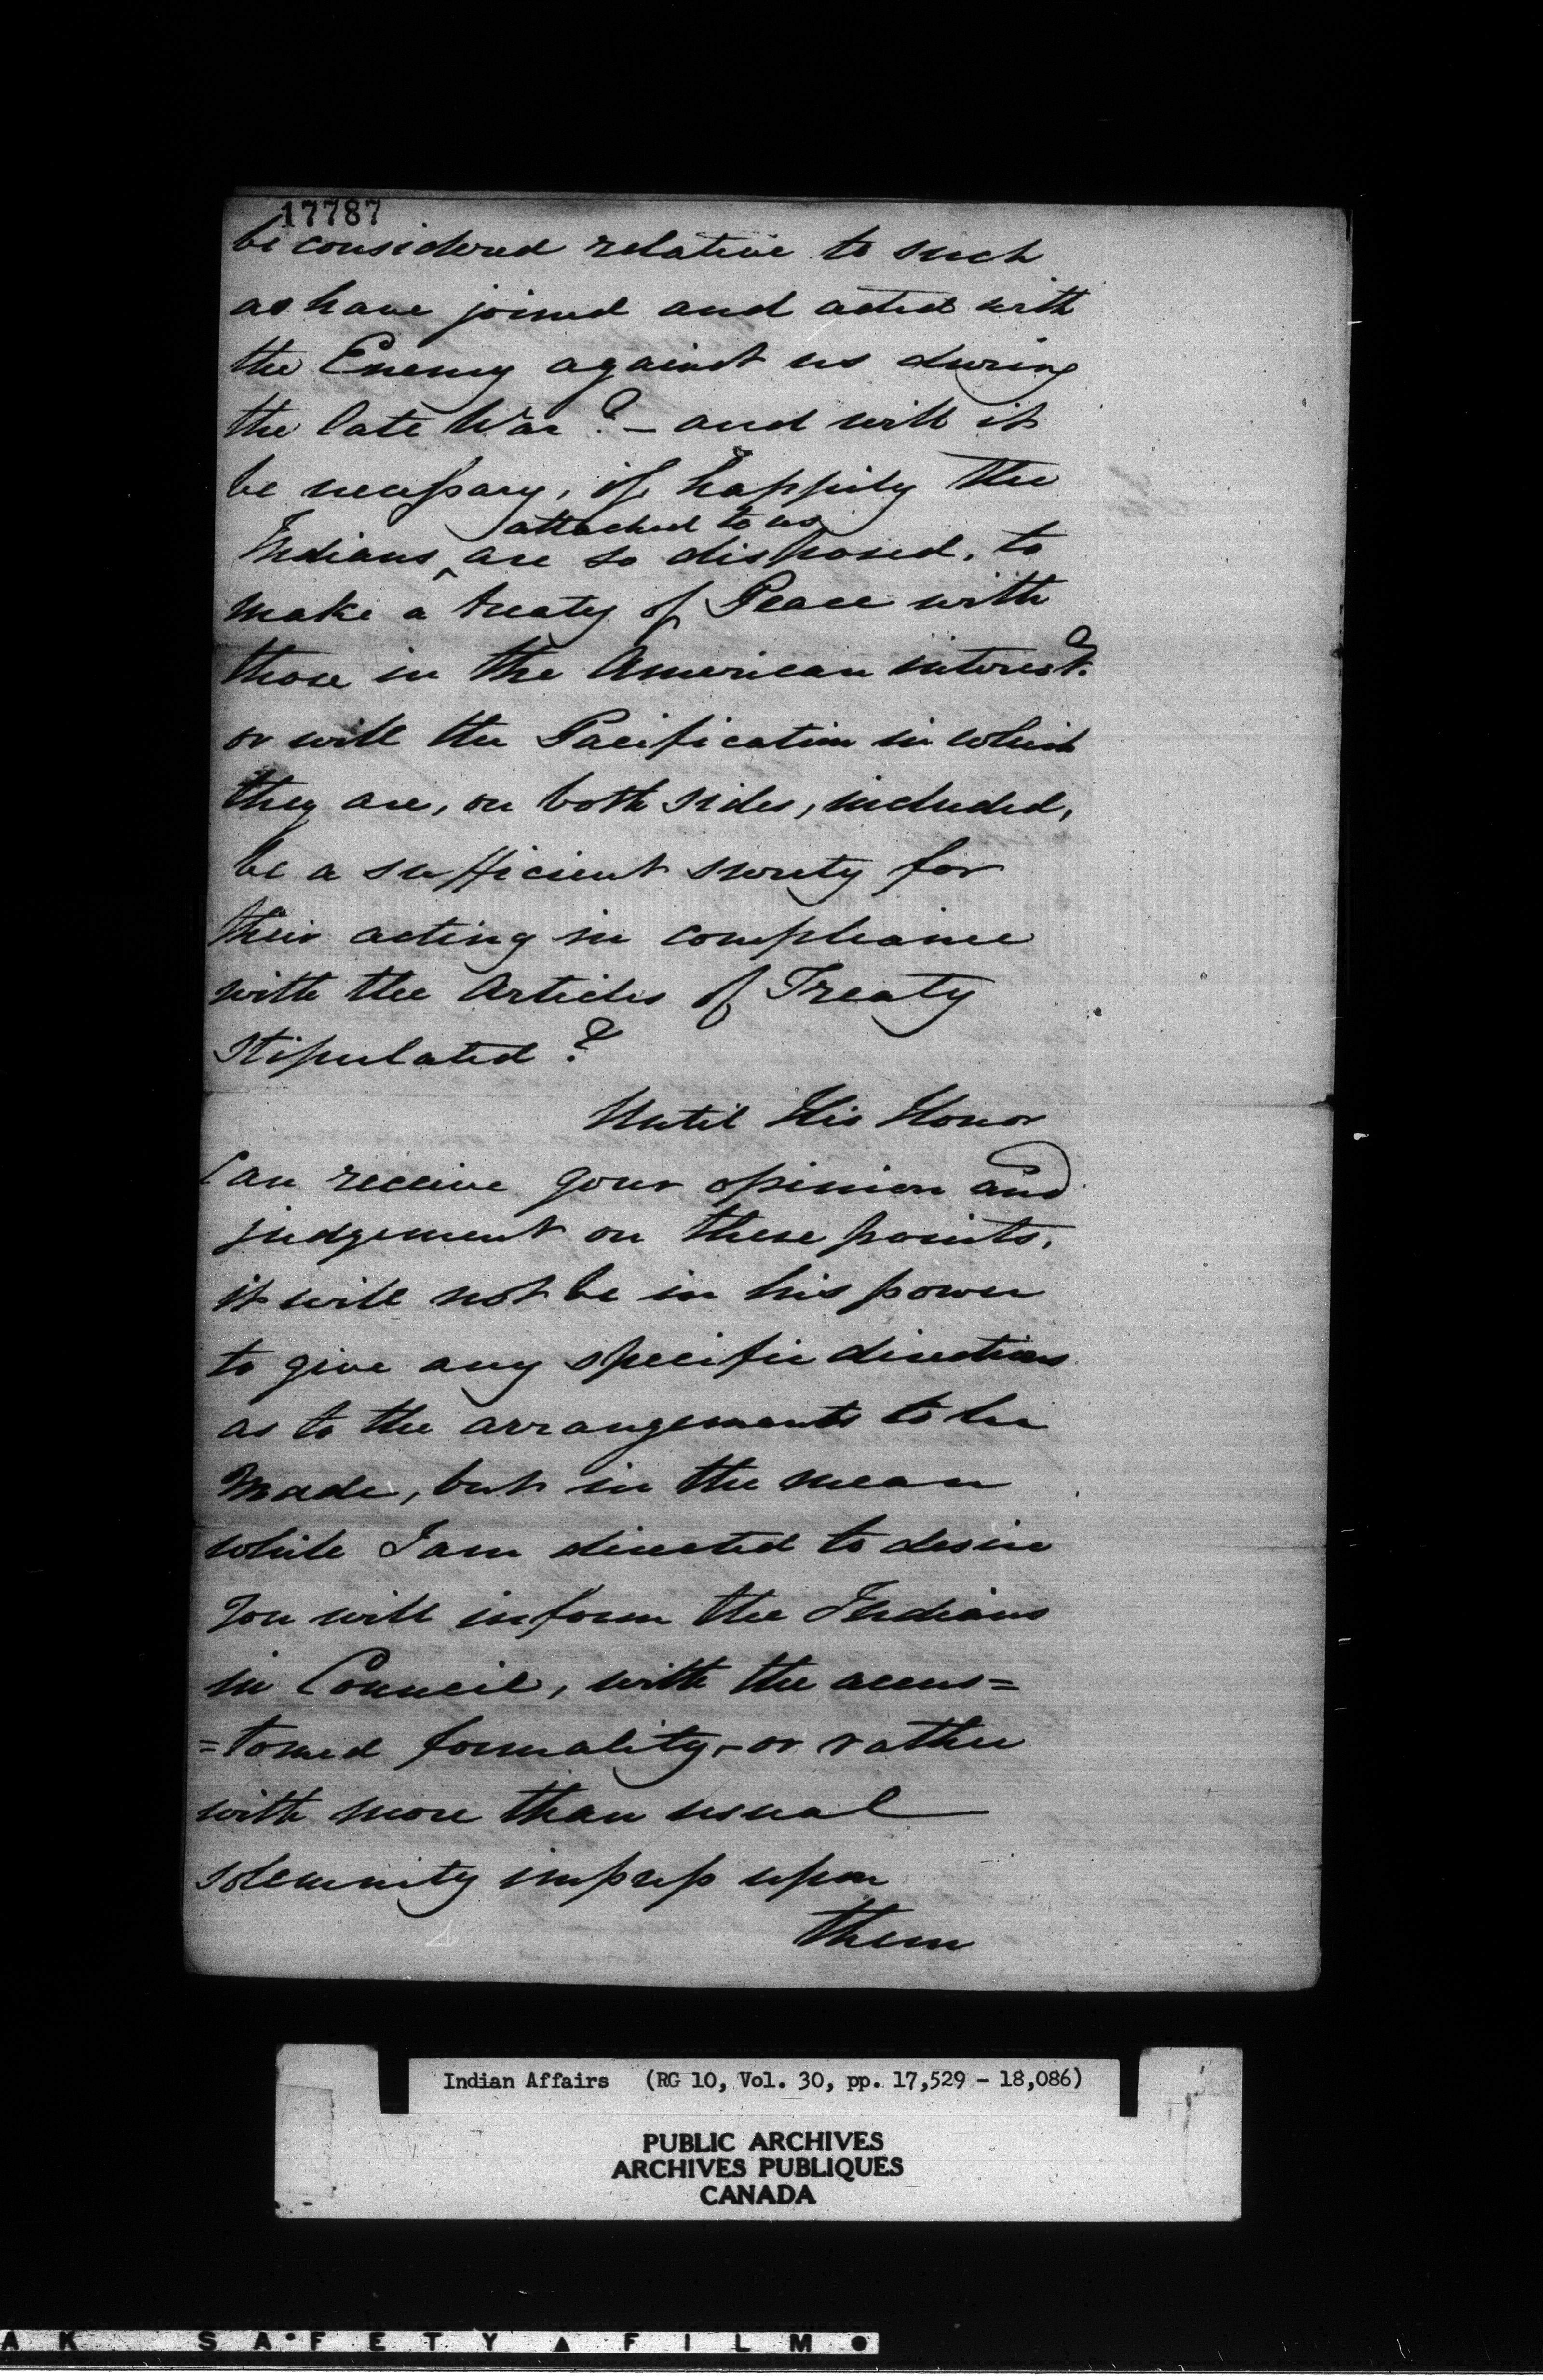 17787
be considered relative to such
as have joined and acted with
the Enemy against us during
the late War? – and will it
be necessary, if happily the
attached to us
Indians ^ are so disposed, to
make a treaty of Peace with
those in the American interest?
or will the Pacification in which
they are, on both sides, included,
be a sufficient surety for
their acting in compliance
with the Articles of Treaty
stipulated?
Until His Honor
Can receive your opinion and
judgement on these points,
it will not be in his power
to give any specific directions
as to the arrangements to be
made, but in the mean
while I am directed to desire
You will inform the Indians
in Council, with the accus=
=tomed formality, – or rather
with more than usual
solemnity impress upon
them
Indian Affairs (RG 10, Vol. 30, pp. 17,529 - 18,086)
PUBLIC ARCHIVES
ARCHIVES PUBLIQUES
CANADA
A K SA•FETY ▲ FILM ●